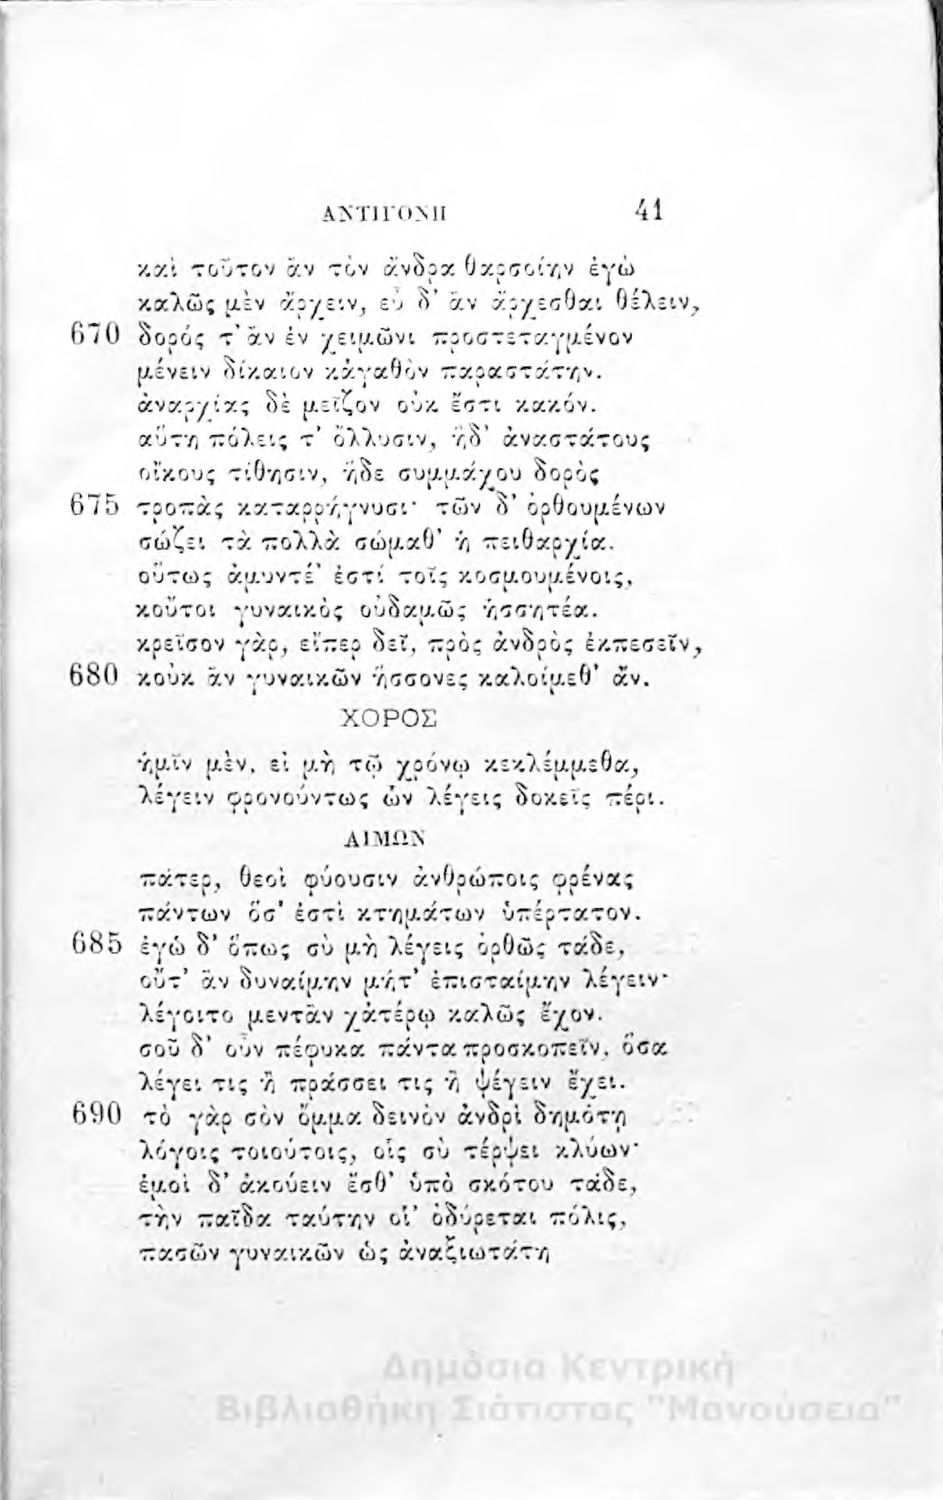 ΑΝΤΙΓΟΝΗ 41
καὶ τοῦτον ἂν τὸν ἄνδρα θαρσοίην ἐγὼ
καλῶς μὲν ἄρχειν, εὖ δ’ ἂν ἄρχεσθαι θέλειν,
670 δορός τ’ ἂν ἐν χειμῶνι προστεταγμένον
μένειν δίκαιον κἀγαθὸν παραστάτην.
ἀναρχίας δὲ μεῖζον οὐκ ἔστι κακόν.
αὕτη πόλεις τ’ ὄλλυσιν, ἥδ’ ἀναστάτους
οἴκους τίθησιν, ἥδε συμμάχου δορὸς
675 τροπὰς καταρρήγνυσι· τῶν δ’ ὀρθουμένων
σώζει τὰ πολλὰ σώμαθ’ ἡ πειθαρχία.
οὕτως ἀμυντέ’ ἐστί τοῖς κοσμουμένοις,
κοὔτοι γυναικὸς οὐδαμῶς ἡσσητέα.
κρεῖσον γὰρ, εἴπερ δεῖ, πρὸς ἀνδρὸς ἐκπεσεῖν,
680 κοὐκ ἂν γυναικῶν ἥσσονες καλοίμεθ’ ἄν.
ΧΟΡΟΣ
ἡμῖν μὲν, εἰ μὴ τῷ χρόνῳ κεκλέμμεθα,
λέγειν φρονούντως ὧν λέγεις δοκεῖς πέρι.
ΑΙΜΩΝ
πάτερ, θεοὶ φύουσιν ἀνθρώποις φρένας
πάντων ὅσ’ ἐστὶ κτημάτων ὑπέρτατον.
685 ἐγὼ δ’ ὅπως σὺ μὴ λέγεις ὀρθῶς τάδε,
οὔτ’ ἂν δυναίμην μήτ’ ἐπισταίμην λέγειν·
λέγοιτο μεντἂν χἀτέρῳ καλῶς ἔχον.
σοῦ δ’ οὖν πέφυκα πάντα προσκοπεῖν, ὅσα
λέγει τις ἢ πράσσει τις ἢ ψέγειν ἔχει.
690 τὸ γὰρ σὸν ὄμμα δεινὸν ἀνδρὶ δημότῃ
λόγοις τοιούτοις, οἷς σὺ τέρψει κλύων·
ἐμοὶ δ’ ἀκούειν ἔσθ’ ὑπὸ σκότου τάδε,
τὴν παῖδα ταύτην οἷ’ ὀδύρεται πόλις,
πασῶν γυναικῶν ὡς ἀναξιωτάτη
Δημόσια Κεντρική
Βιβλιοθήκη Σιάτιστας "Μανούσεια"